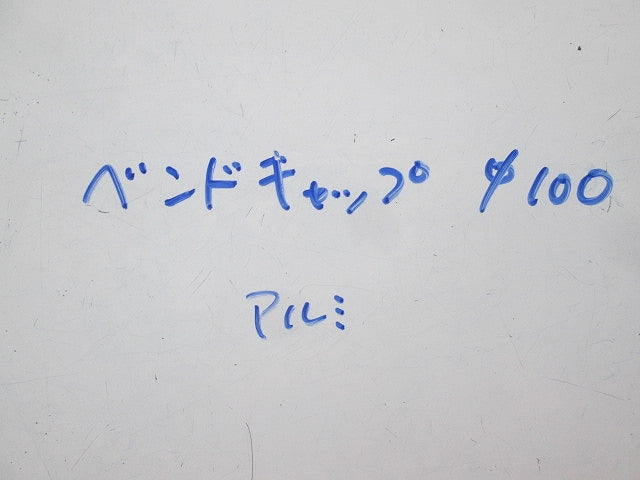 ベンドキャップ φ100
アルミ